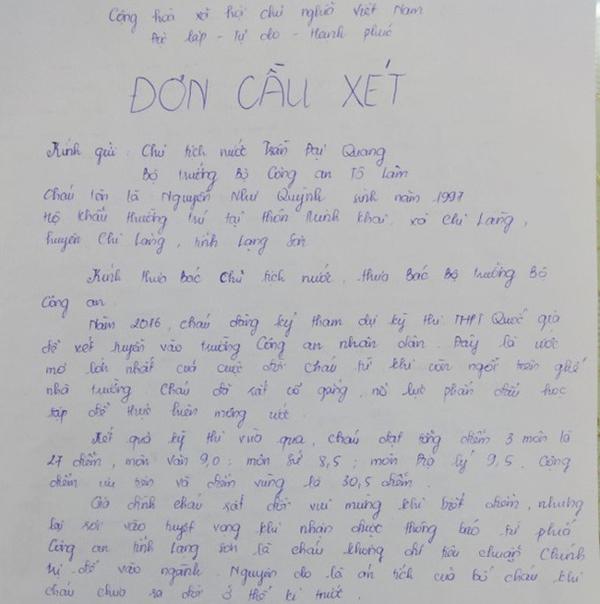 Cộng hoà xã hội chủ nghĩa Việt Nam
Độc lập - Tự do - Hạnh phúc
ĐƠN CẦU XÉT
Kính gửi : Chủ tịch nước Trần Đại Quang
Bộ trưởng Bộ Công an Tô Lâm
Cháu tên là Nguyễn Như Quỳnh sinh năm 1997
Hộ khẩu thường trú tại thôn Minh Khai, xã Chi Lăng,
huyện Chi Lăng, tỉnh Lạng Sơn
Kính thưa bác Chủ tịch nước, thưa bác Bộ trưởng Bộ
Công an.
Năm 2016, cháu đăng ký tham dự kỳ thi THPT Quốc gia
để xét tuyển vào trường Công an nhân dân. Đây là ước
mơ lớn nhất của cuộc đời cháu từ khi còn ngồi trên ghế
nhà trường. Cháu đã rất cố gắng, nỗ lực phấn đấu học
tập để thực hiện mong ước.
Kết quả kỳ thi vừa qua, cháu đạt tổng điểm 3 môn là
27 điểm, môn văn 9,0 ; môn sử 8,5 ; môn Địa lý 9,5. Cộng
điểm ưu tiên và điểm vùng là 30,5 điểm.
Gia đình cháu rất đỗi vui mừng khi biết điểm, nhưng
lại rơi vào tuyệt vọng khi nhận được thông báo từ phía
Công an tỉnh Lạng Sơn là cháu không đủ tiêu chuẩn Chính
trị để vào ngành. Nguyên do là án tích của bố cháu khi
cháu chưa ra đời ở thế kỉ trước.